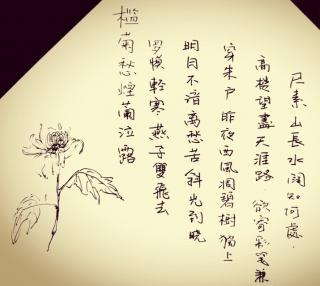 檻菊愁煙蘭泣露
罗幙輕寒燕子雙飛去
明月不谙离愁苦斜光到晓
穿朱户昨夜西風凋碧樹獨上
高樓望盡天涯路.欲寄彩笺兼
尺素山長水阔知何處.